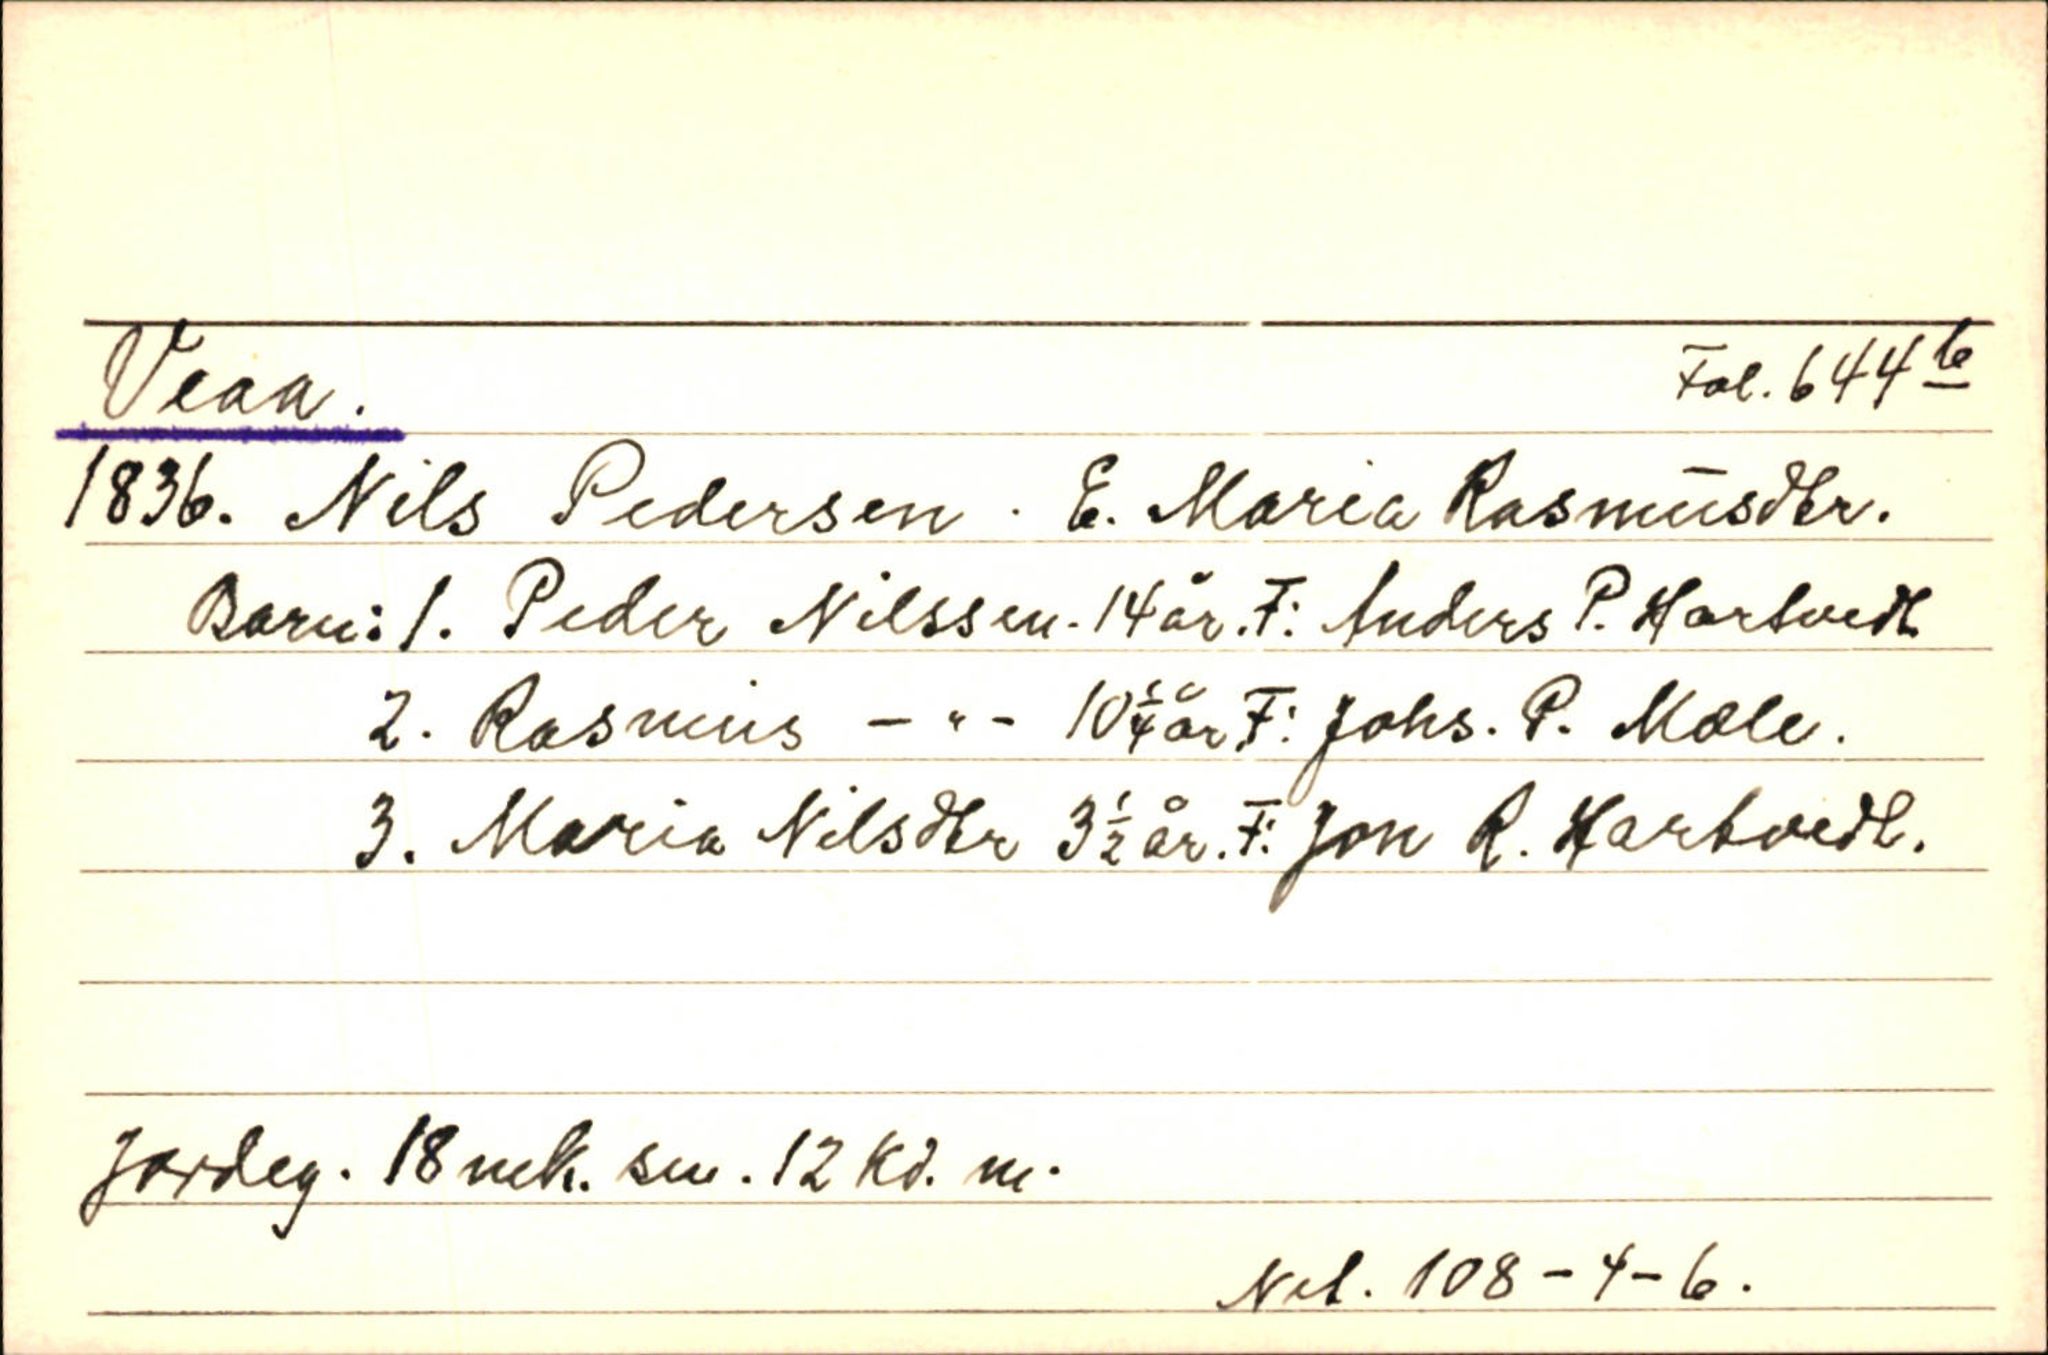 Veaa. Fol. 644 b
1836. Nils Pedersen. E. Maria Rasmusdtr.
Barn: 1. Peder Nilssen. 14 år. F: Anders P. Hartvedt
2. Rasmus - " - 10 1/4 år F: Johs. P. Mæle.
3. Maria Nilsdtr 3 1/2 år. F: Jon R. Hartvedt.
Jordeg. 18 mk. sm. 12 Kd. m.
Net. 108-4-6.